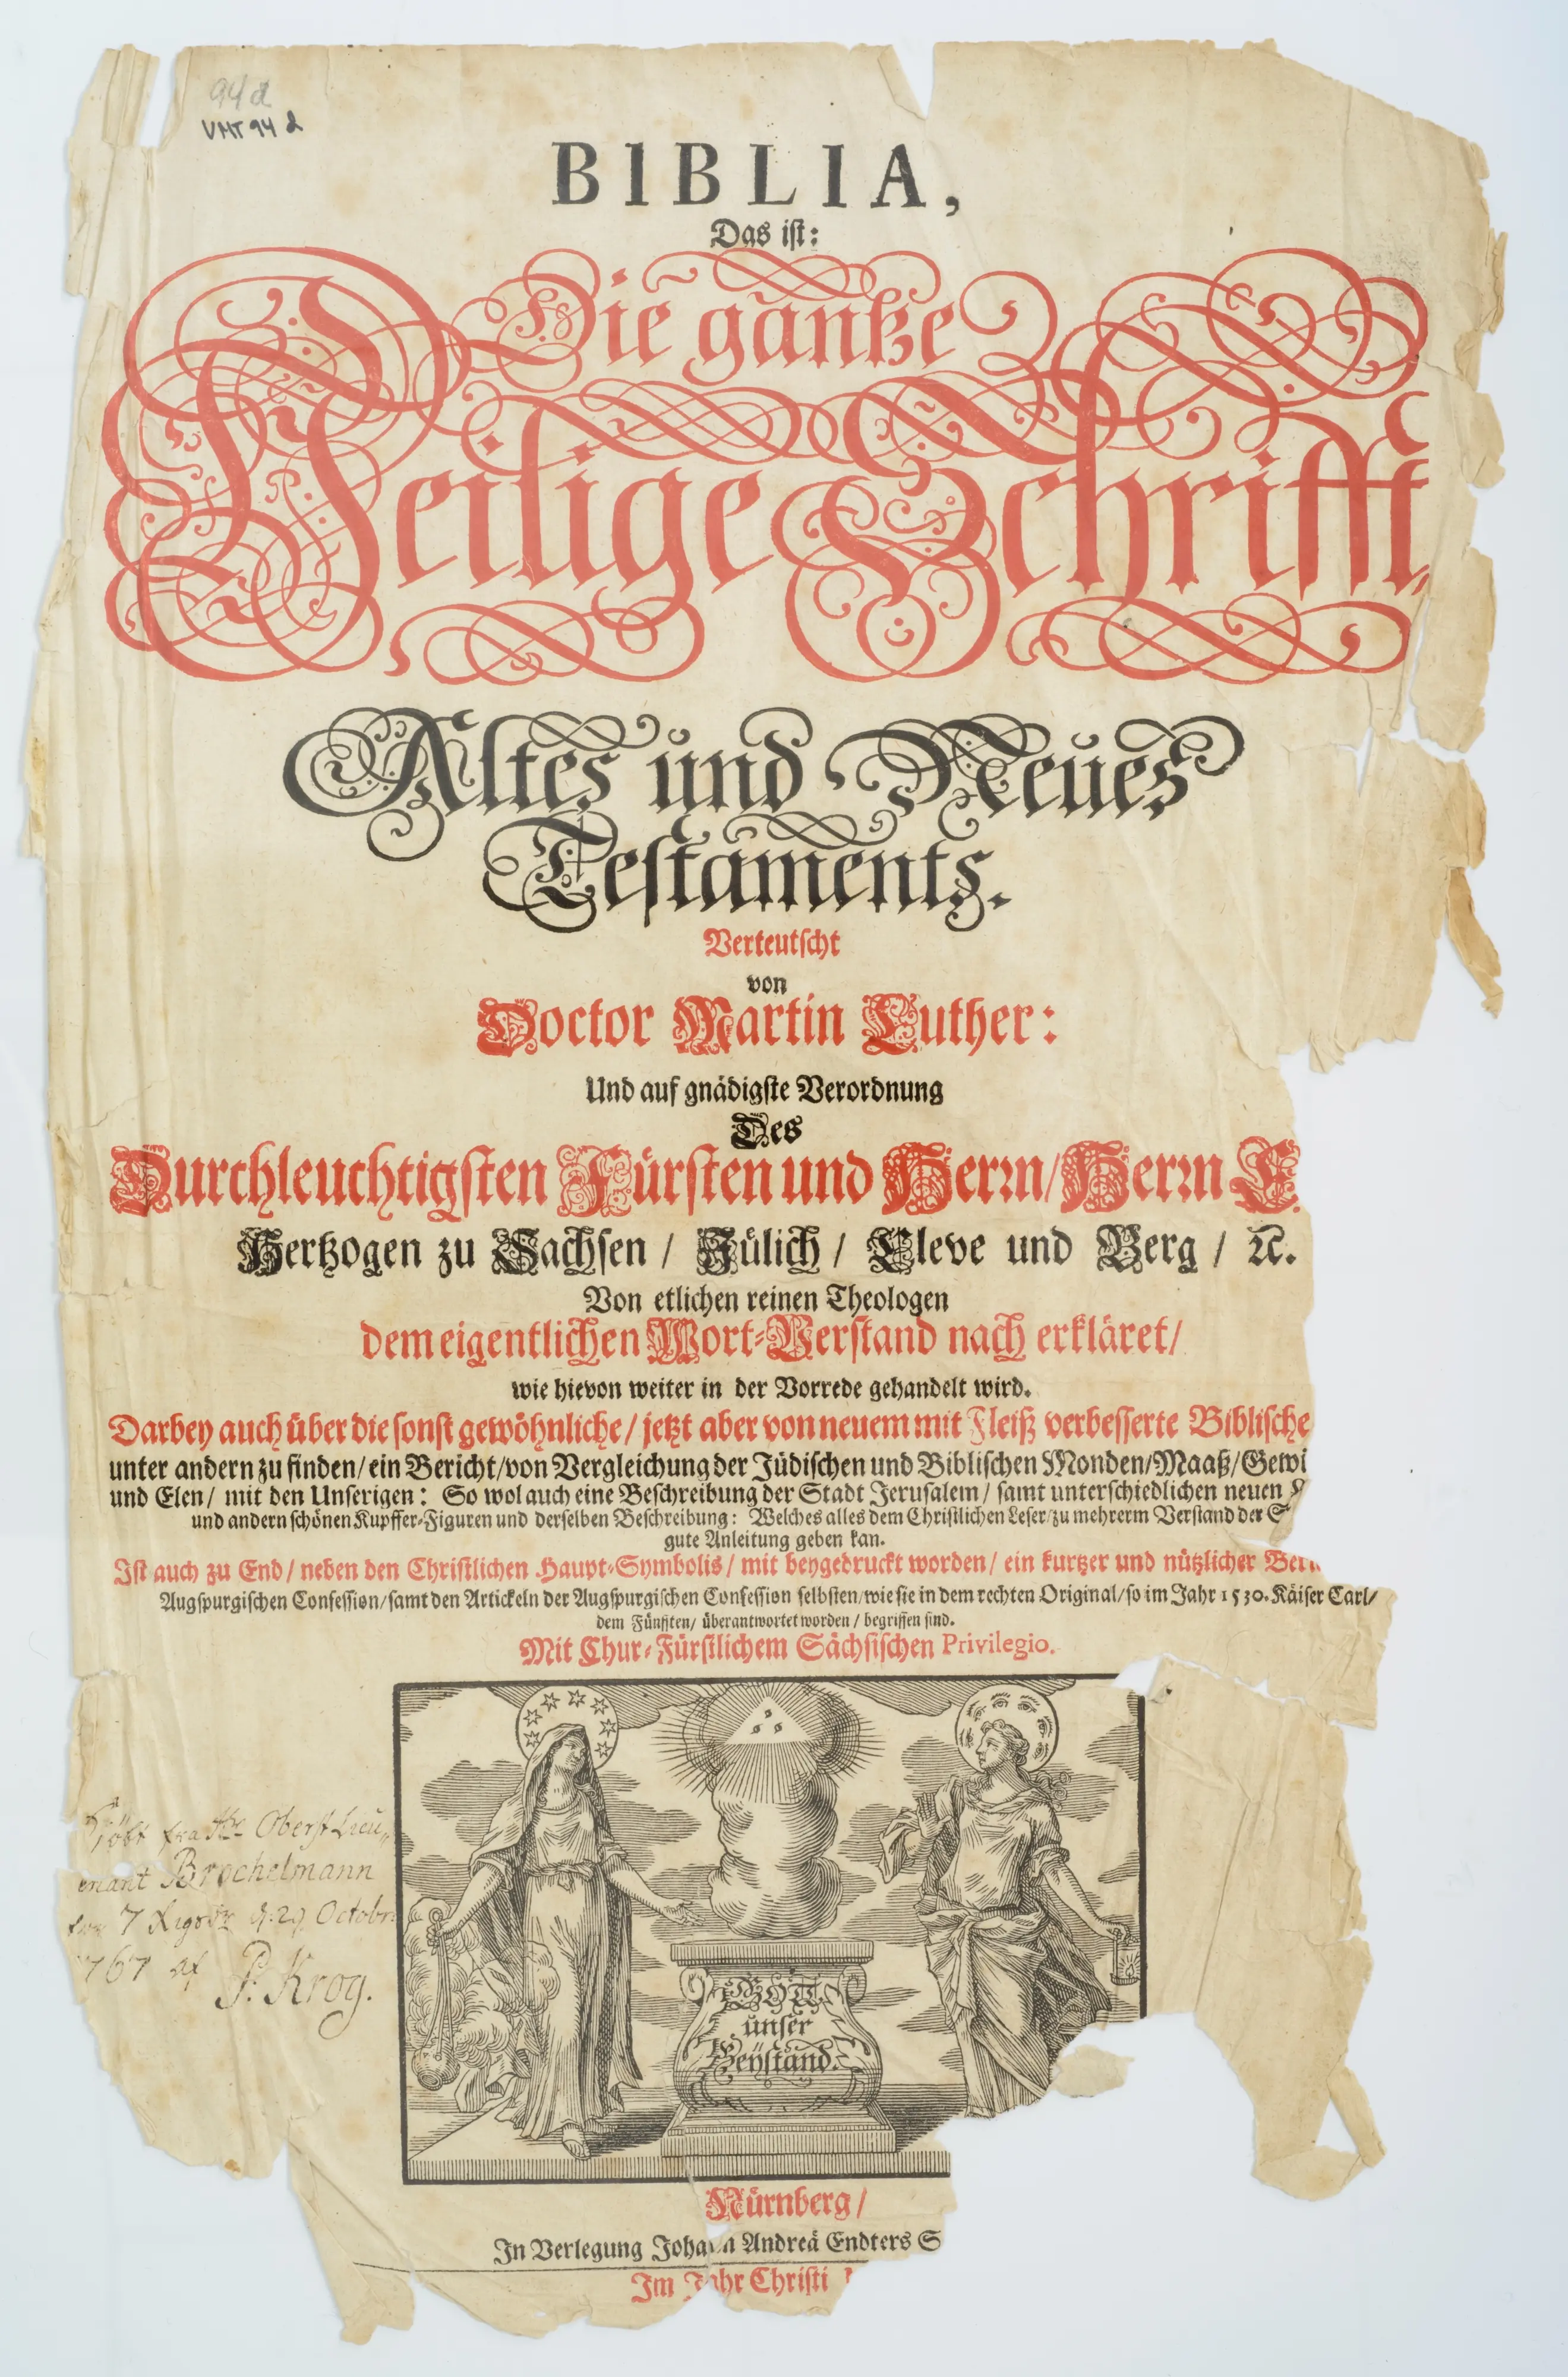 94 d
VMT 94 d
BIBLIA,
Das ist:
Die gantze
Heilige Schrifft
Altes und Neues
Testaments.
Verteutscht
von
Doctor Martin Luther:
Und auf gnädigste Verordnung
Des
Durchleuchtigsten Fürsten und Herrn/ Herrn E.
Hertzogen zu Sachsen / Jülich / Cleve und Berg / ꝛc.
Von etlichen reinen Theologen
dem eigentlichen Wort-Verstand nach erkläret/
wie hievon weiter in der Vorrede gehandelt wird.
Darbey auch über die sonst gewöhnliche/ jetzt aber von neuem mit Fleiß verbesserte Biblische
unter andern zu finden/ ein Bericht/ von Vergleichung der Jüdischen und Biblischen Monden/ Maaß/ Gewi
und Elen/ mit den Unserigen: So wol auch eine Beschreibung der Stadt Jerusalem/ samt unterschiedlichen neuen
und andern schönen Kupffer-Figuren und derselben Beschreibung: Welches alles dem Christlichen Leser/ zu mehrerm Verstand der S
gute Anleitung geben kan.
Ist auch zu End/ neben den Christlichen Haupt-Symbolis/ mit beygedruckt worden/ ein kurtzer und nützlicher Beri
Augspurgischen Confession/ samt den Artickeln der Augspurgischen Confession selbsten/ wie sie in dem rechten Original/ so im Jahr 1530. Käiser Carl/
dem Fünfften/ überantwortet worden/ begriffen sind.
Mit Chur-Fürstlichem Sächsischen Privilegio.
Kiöbt fra Hr Oberst Lieu„
enant Brochelmann
for 7 Rigsdr d: 29 Octobr:
1767 af
P. Krog.
GOTT
unser
Beystand.
Nürnberg/
In Verlegung Johann Andreä Endters S
Im Jahr Christi